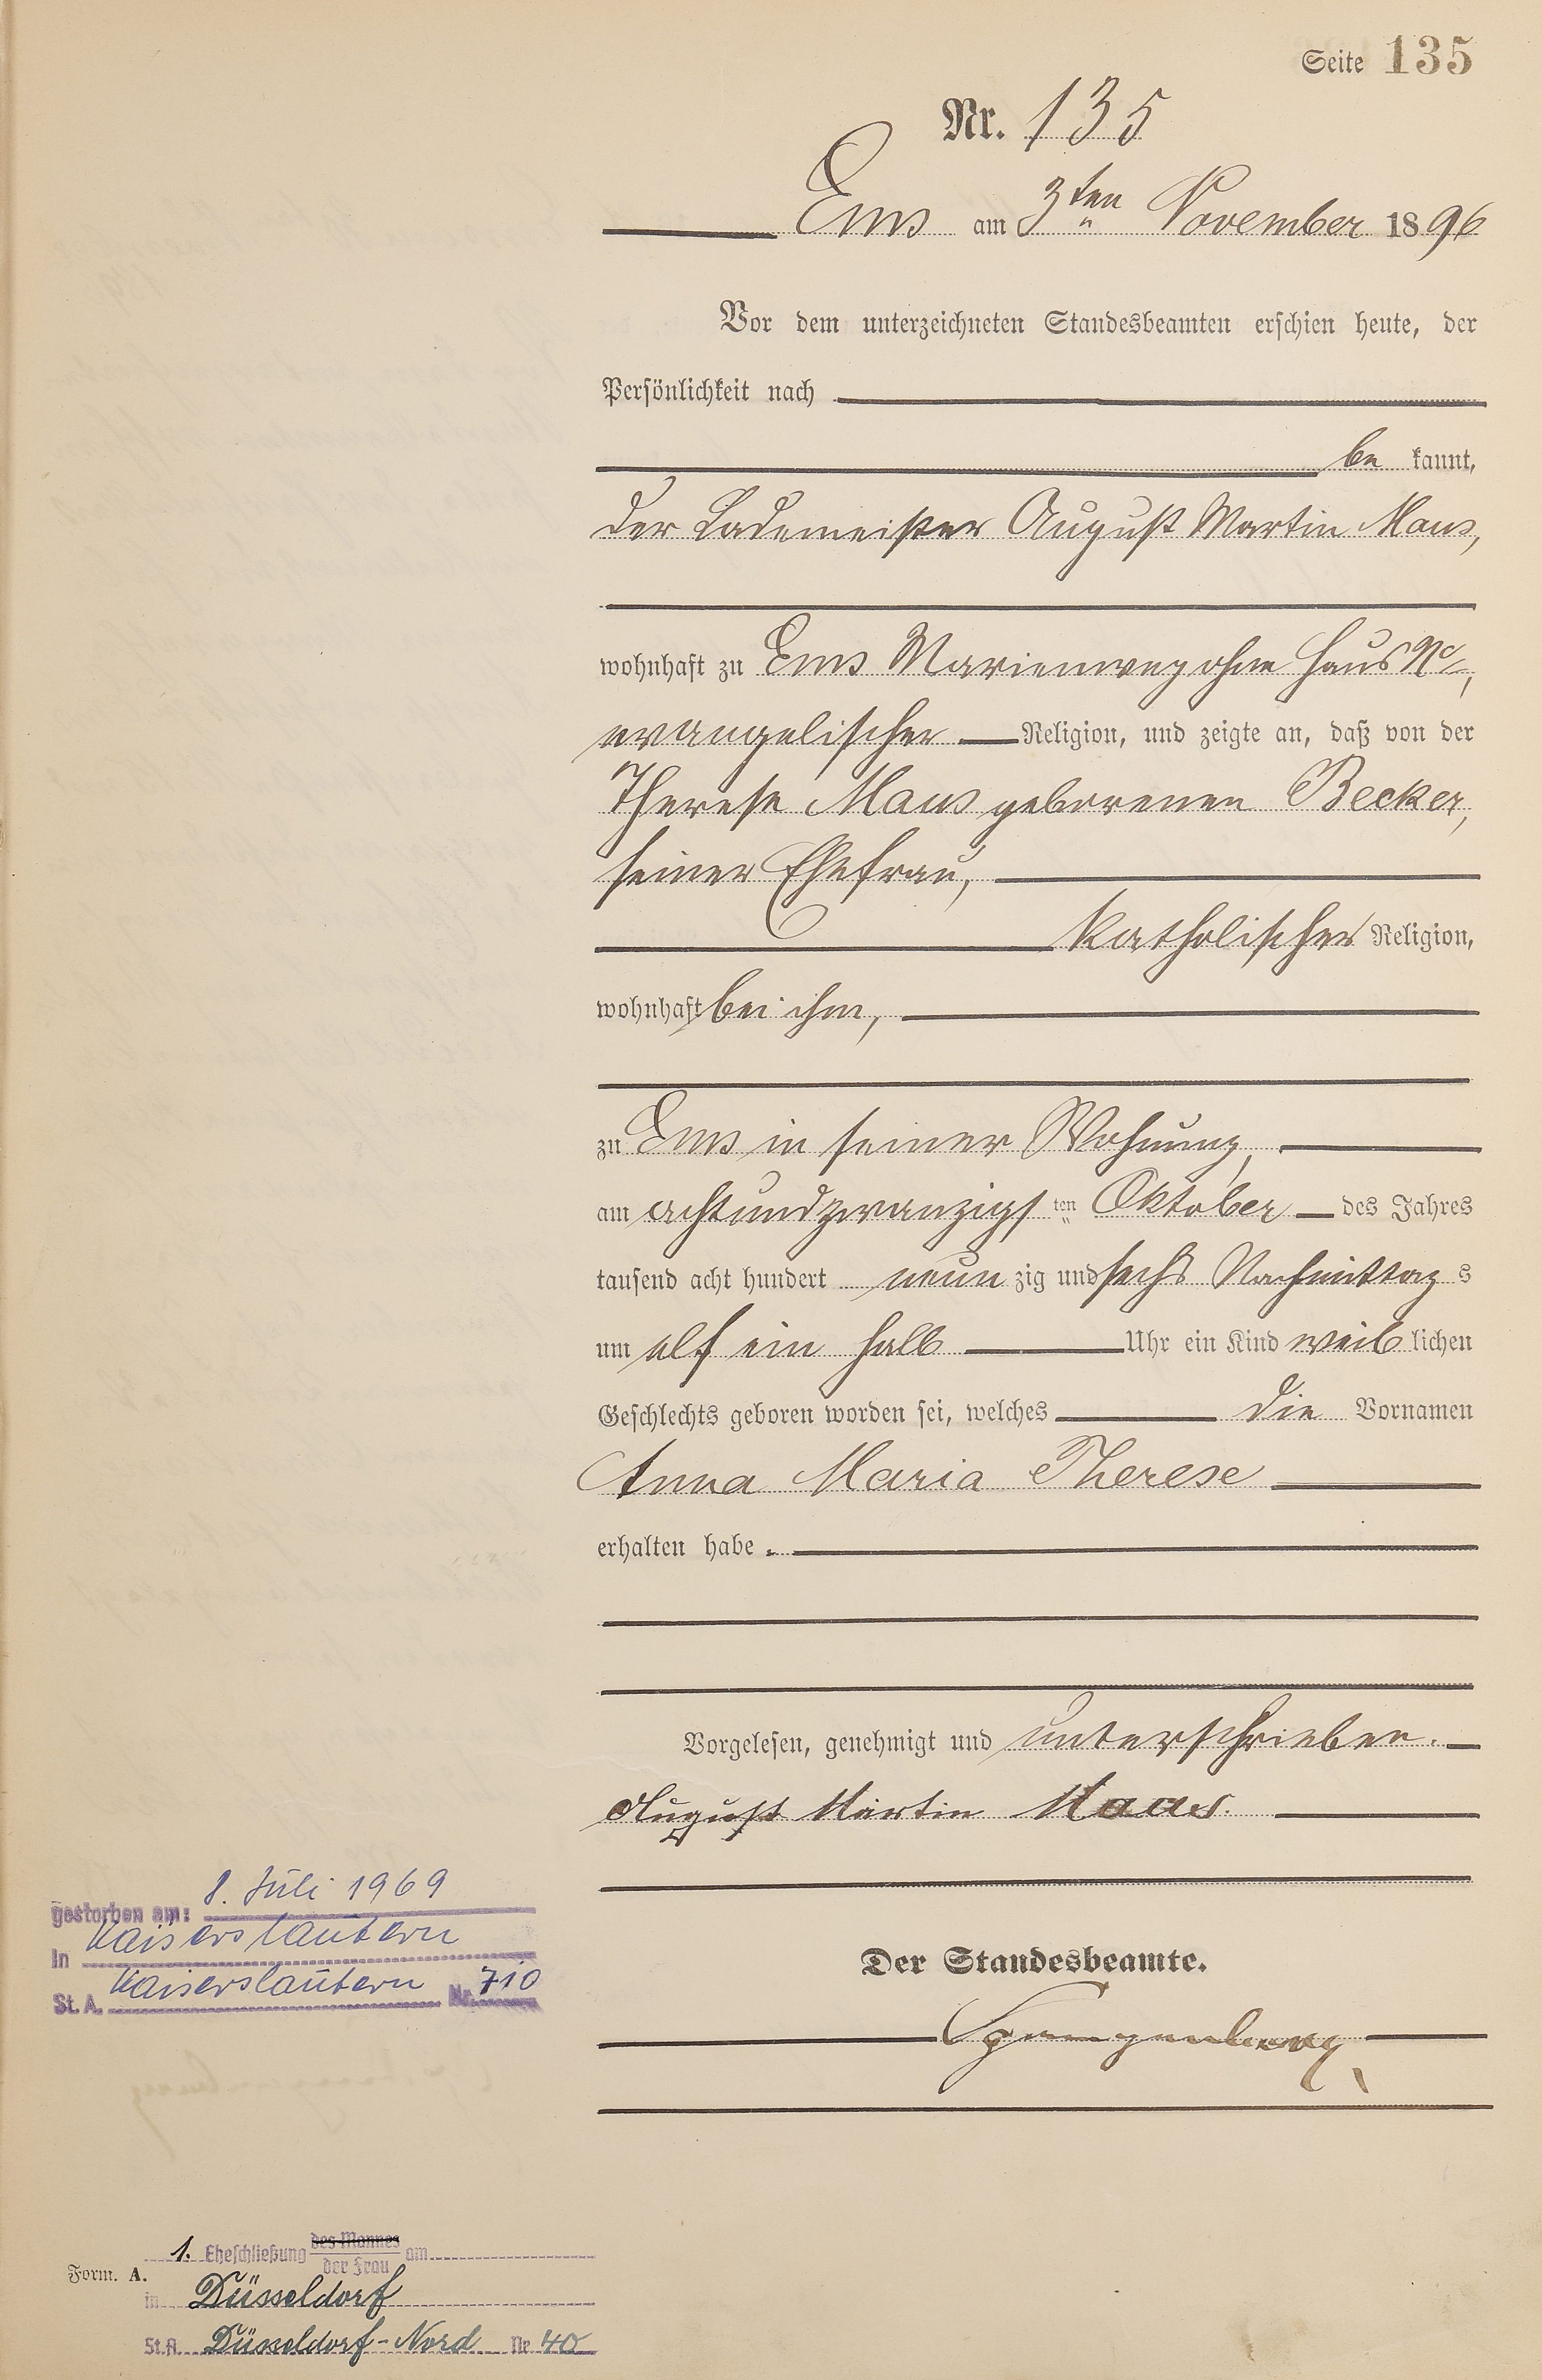 Seite 135
Nr. 135
Ems am 3ten November 1896
Vor dem unterzeichneten Standesbeamten erschien heute, der
Persönlichkeit nach
be kannt,
der Lademeister August Martin Maus,
wohnhaft zu Ems Marienweg ohne Haus No,
evangelischer Religion, und zeigte an, daß von der
Therese Maus geborenen Becker,
seiner Ehefrau,
katholischer Religion,
wohnhaft bei ihm,
zu Ems in seiner Wohnung,
am achtundzwanzigs ten Oktober des Jahres
tausend acht hundert neun zig und sechs Nachmittag s
um elf ein halb Uhr ein Kind weib lichen
Geschlechts geboren worden sei, welches die Vornamen
Anna Maria Therese
erhalten habe.
Vorgelesen, genehmigt und unterschrieben.
August Martin Maus.
gestorben am: 8. Juli 1969
in Kaiserslautern
St. A. Kaiserslautern Nr. 710
Der Standesbeamte.
Spangenberg
1. Eheschließung des Mannes
der Frau am
Form. A.
in Düsseldorf
St.A. Düsseldorf-Nord Nr 40